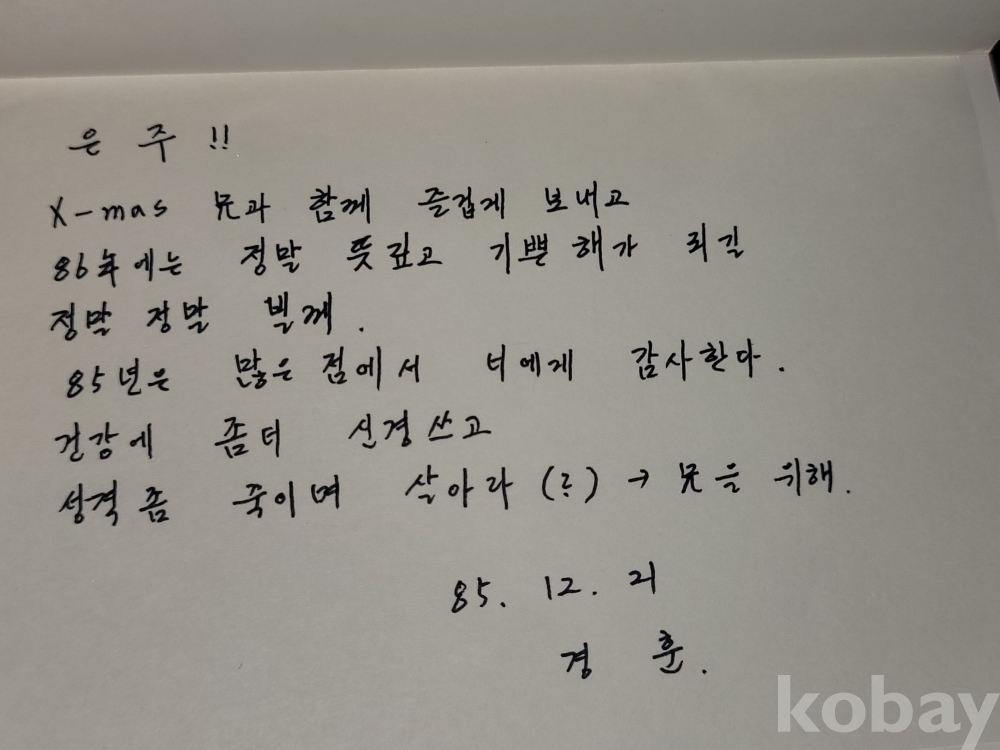 은 주 !!
X-mas 兄과 함께 즐겁게 보내고
86年에는 정말 뜻깊고 기쁜 해가 되길
정말 정말 빌께.
85년은 많은 점에서 너에게 감사한다.
건강에 좀더 신경쓰고
성격좀 죽이며 살아라 (?) → 兄을 위해.
85. 12. 21
경 훈.
kobay